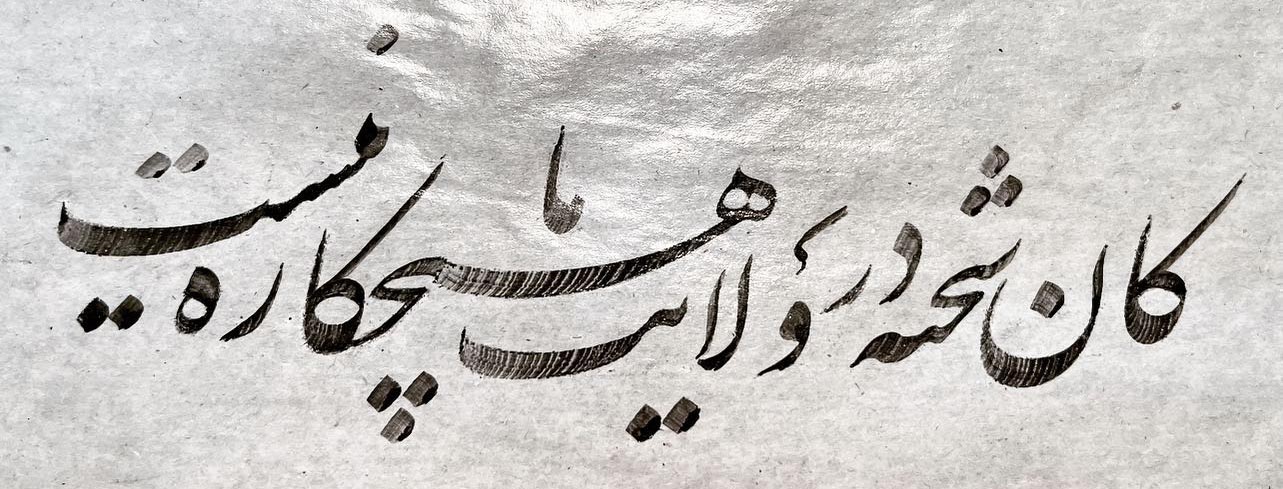 کان شحنه در ولایت ما هیچکاره نیست